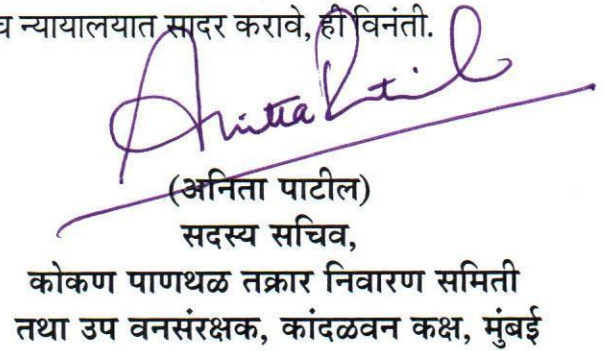 व न्यायालयात सादर करावे, ही विनंती.
Anitta Patil
(अनिता पाटील)
सदस्य सचिव,
कोकण पाणथळ तक्रार निवारण समिती
तथा उप वनसंरक्षक, कांदळवन कक्ष, मुंबई